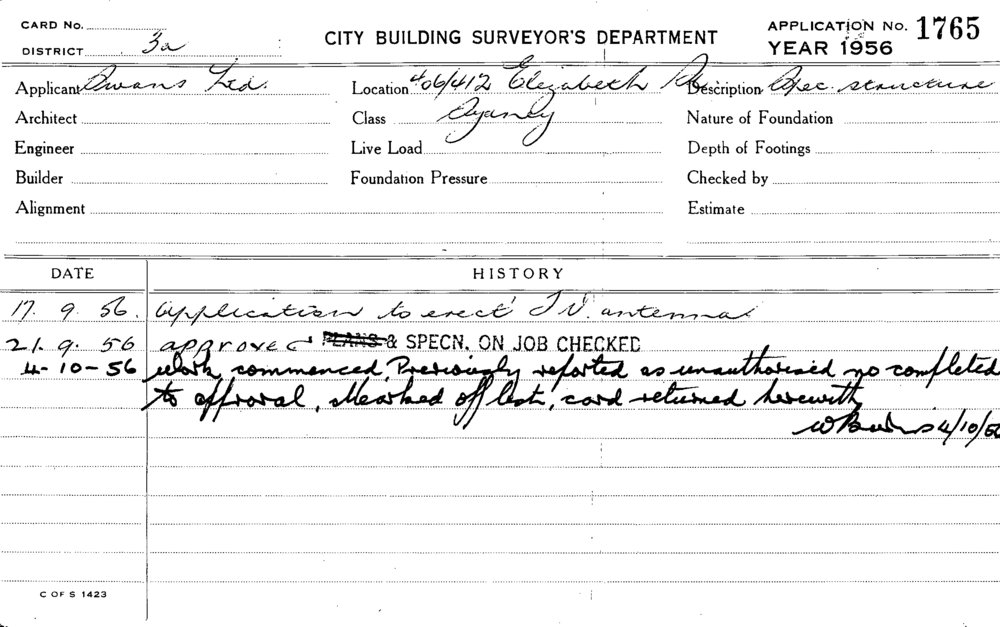 CARD No.
DISTRICT 3a
CITY BUILDING SURVEYOR'S DEPARTMENT
APPLICATION No. 1765
YEAR 1956
Applicant Swans Ltd. Location 406/412 Elizabeth Description Spec. structure
Architect Class Sydney Nature of Foundation
Engineer Live Load Depth of Footings
Builder Foundation Pressure Checked by
Alignment Estimate
DATE HISTORY
17. 9. 56. Application to erect T.V. antenna
21. 9. 56 approved PLANS & SPECN. ON JOB CHECKED
4-10-56 Work commenced. Previously reported as unauthorised no completed
to approval. Marked off list, card returned herewith
4/10/56
C OF S 1423